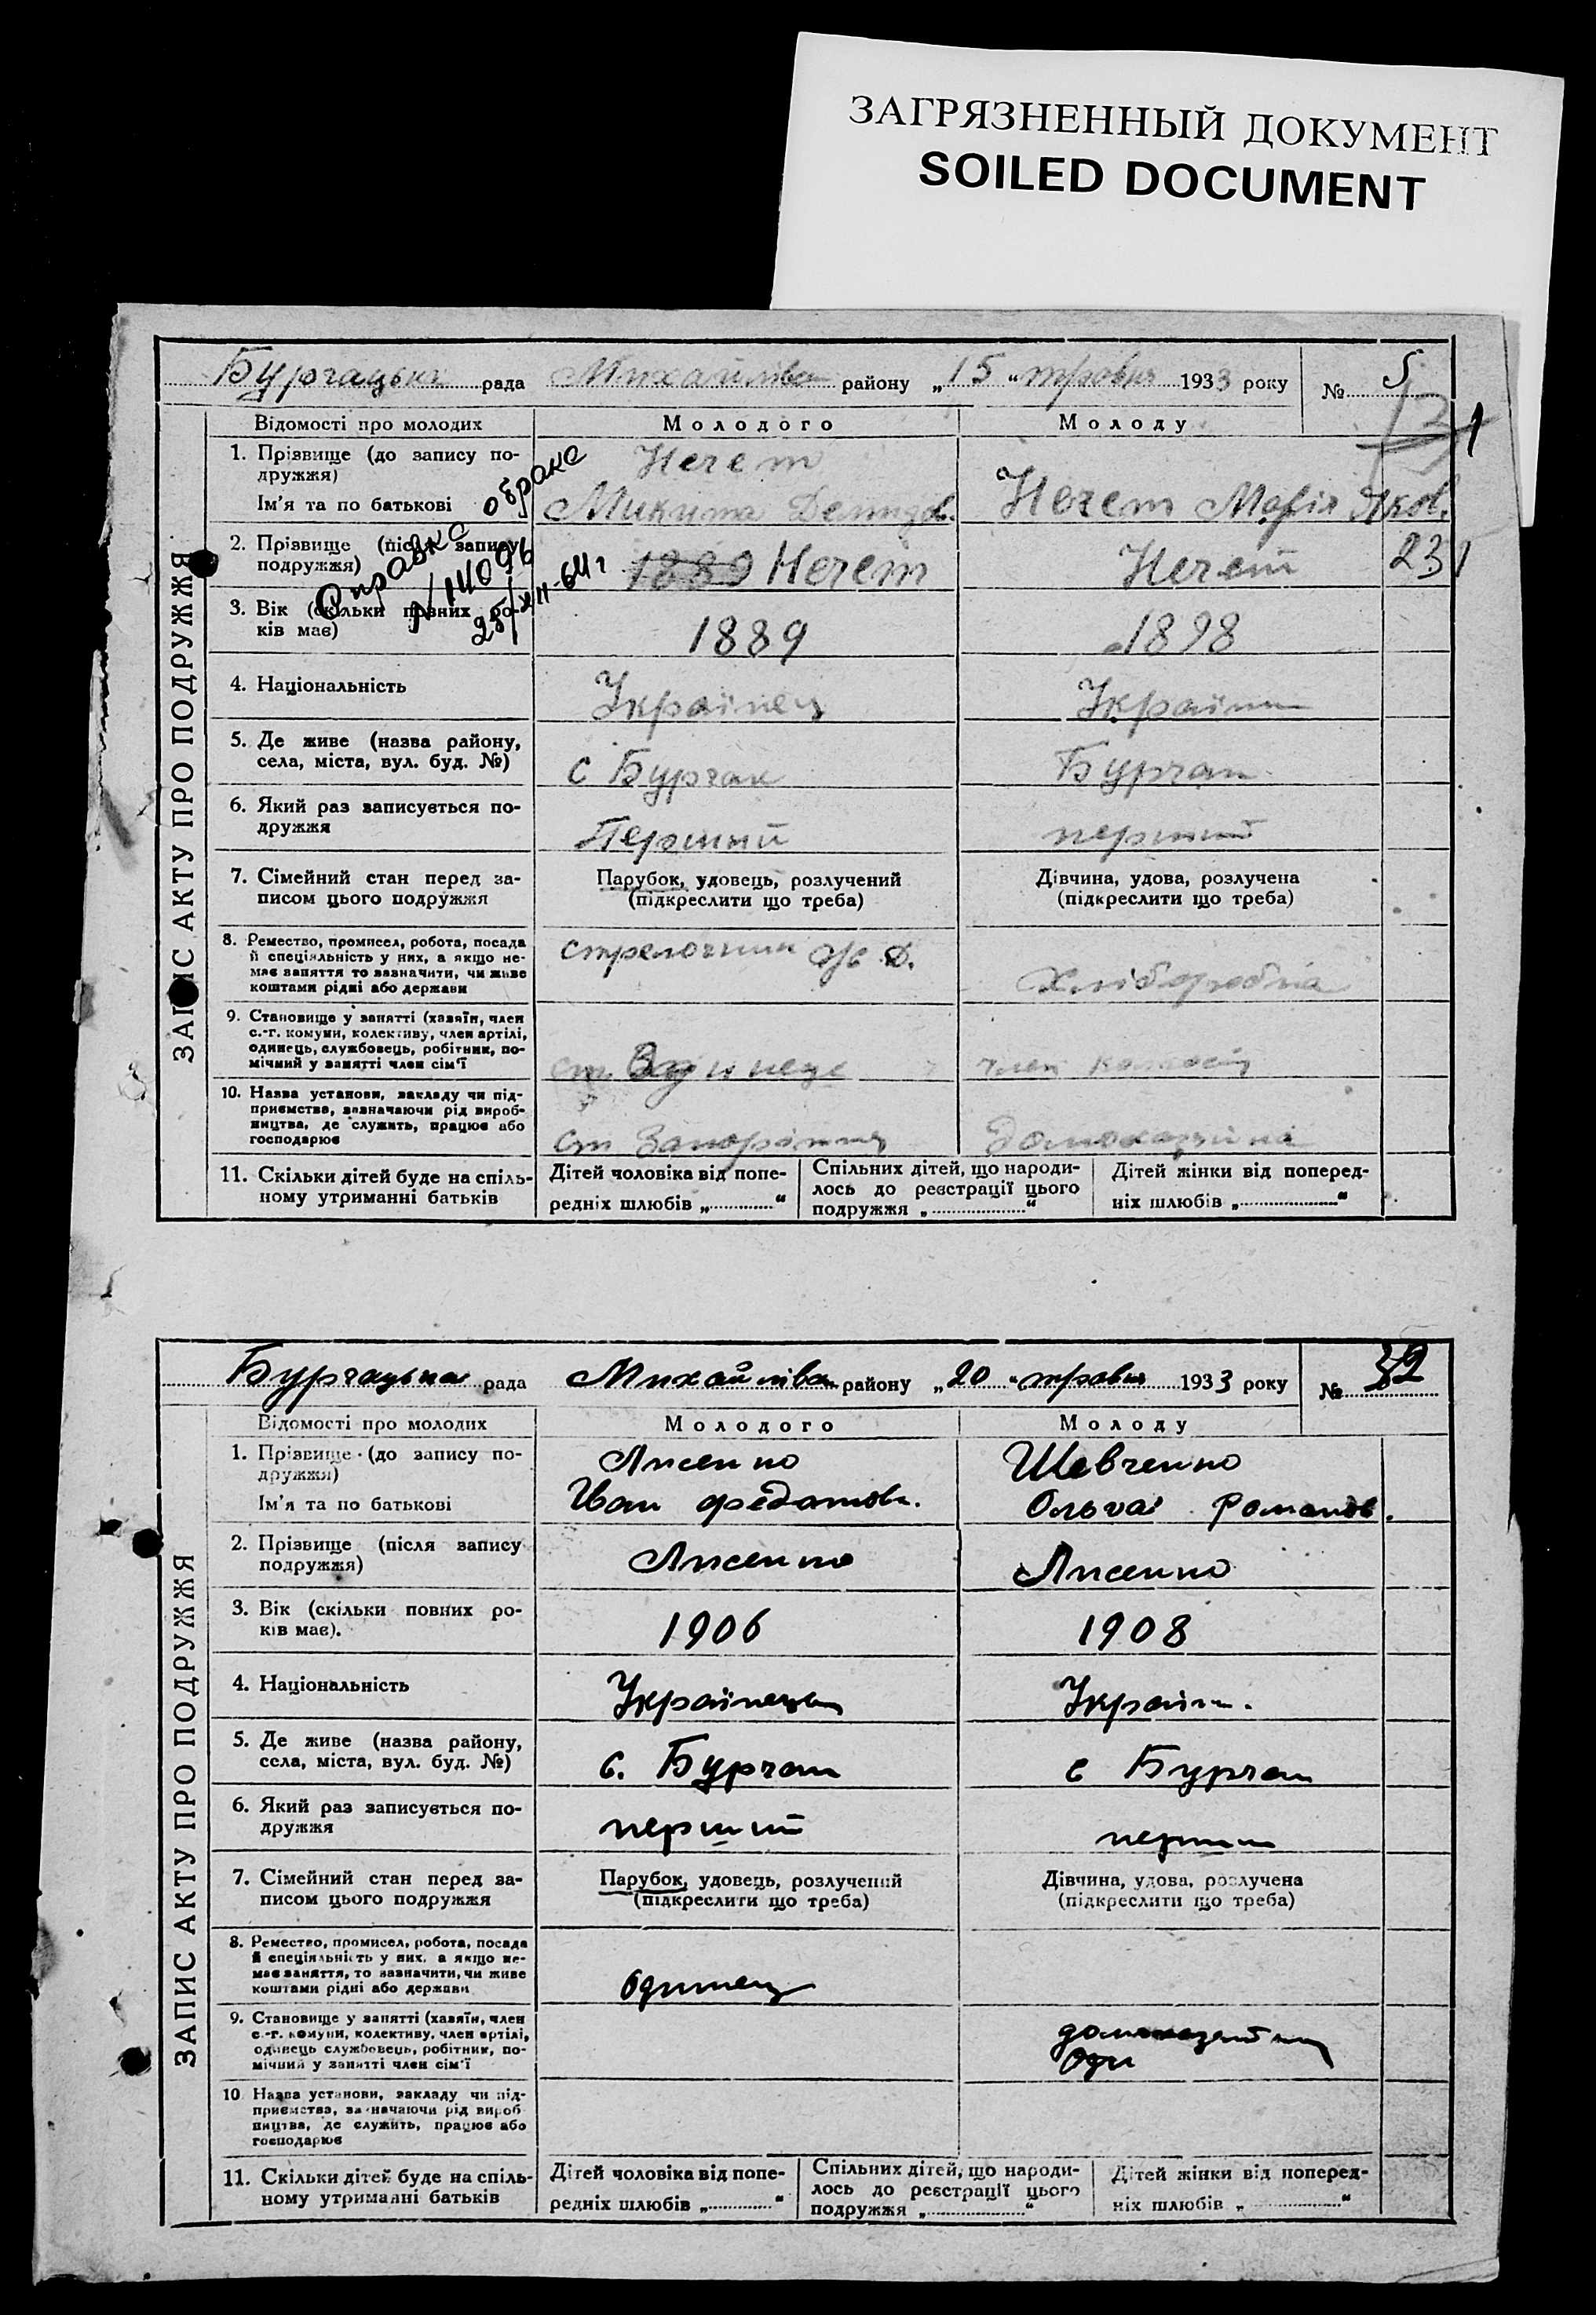 ЗАГРЯЗНЕННЫЙ ДОКУМЕНТ
SOILED DOCUMENT
Бурчацька рада Михайлівсь району „15“ травня 1933 року № 5
1
ЗАПИС АКТУ ПРО ПОДРУЖЖЯ
Відомості про молодих Молодого Молоду
1. Прізвище (до запису по-
дружжя)
Нечет
Ім'я та по батькові Микита Демидов. Нечет Марія Яков.
Справка о браке
N 14096
25/XII-64 г
2. Прізвище (після запису
подружжя)
1889 Нечет Нечет 23
3. Вік (скільки повних ро-
ків має)
1889 1898
4. Національність Українец Україн
5. Де живе (назва району,
села, міста, вул. буд. №)
с Бурчак Бурчак
6. Який раз записується по-
дружжя
Перший перший
7. Сімейний стан перед за-
писом цього подружжя
Парубок, удовець, розлучений
(підкреслити що треба)
Дівчина, удова, розлучена
(підкреслити що треба)
8. Ремество, промисел, робота, посада
й спеціяльність у них, а якщо не-
має заняття то зазначити, чи живе
коштами рідні або держави
стрелочник Хлібороб
9. Становище у занятті (хазяїн, член
с.-г. комуни, колективу, член артілі,
одинець, службовець, робітник, по-
мічний у занятті член сім'ї
ст. член
10. Назва установи, закладу чи під-
приємства, зазначаючи рід вироб-
ництва, де служить, працює або
господарює
ст
11. Скільки дітей буде на спіль-
ному утриманні батьків
Дітей чоловіка від попе-
редніх шлюбів „ “
Спільних дітей, що народи-
лось до реєстрації цього
подружжя „ “
Дітей жінки від поперед-
ніх шлюбів „ “
Бурчацька рада Михайлівсь району „20“ травня 1933 року №
ЗАПИС АКТУ ПРО ПОДРУЖЖЯ
Відомості про молодих Молодого Молоду
1. Прізвище (до запису по-
дружжя)
Лисенко Шевченко
Ім'я та по батькові Іван Федатов. Ольга Романов.
2. Прізвище (після запису
подружжя)
Лисенко Лисенко
3. Вік (скільки повних ро-
ків має).
1906 1908
4. Національність Українець Україн.
5. Де живе (назва району,
села, міста, вул. буд. №)
с. Бурчак с Бурчак
6. Який раз записується по-
дружжя
перший перший
7. Сімейний стан перед за-
писом цього подружжя
Парубок, удовець, розлучений
(підкреслити що треба)
Дівчина, удова, розлучена
(підкреслити що треба)
8. Ремество, промисел, робота, посада
й спеціяльність у них, а якщо не-
має заняття, то зазначити, чи живе
коштами рідні або держави
Одинец
9. Становище у занятті (хазяїн, член
с.-г. комуни, колективу, член артілі,
одинець службовець, робітник, по-
мічний у занятті член сім'ї
Оди
10 Назва установи, закладу чи під-
приємства, зазначаючи рід вироб
ництва, де служить, працює або
господарює
11. Скільки дітей буде на спіль-
ному утриманні батьків
Дітей чоловіка від попе-
редніх шлюбів „ “
Спільних дітей, що народи-
лось до реєстрації цього
подружжя „ “
Дітей жінки від поперед-
ніх шлюбів „ “